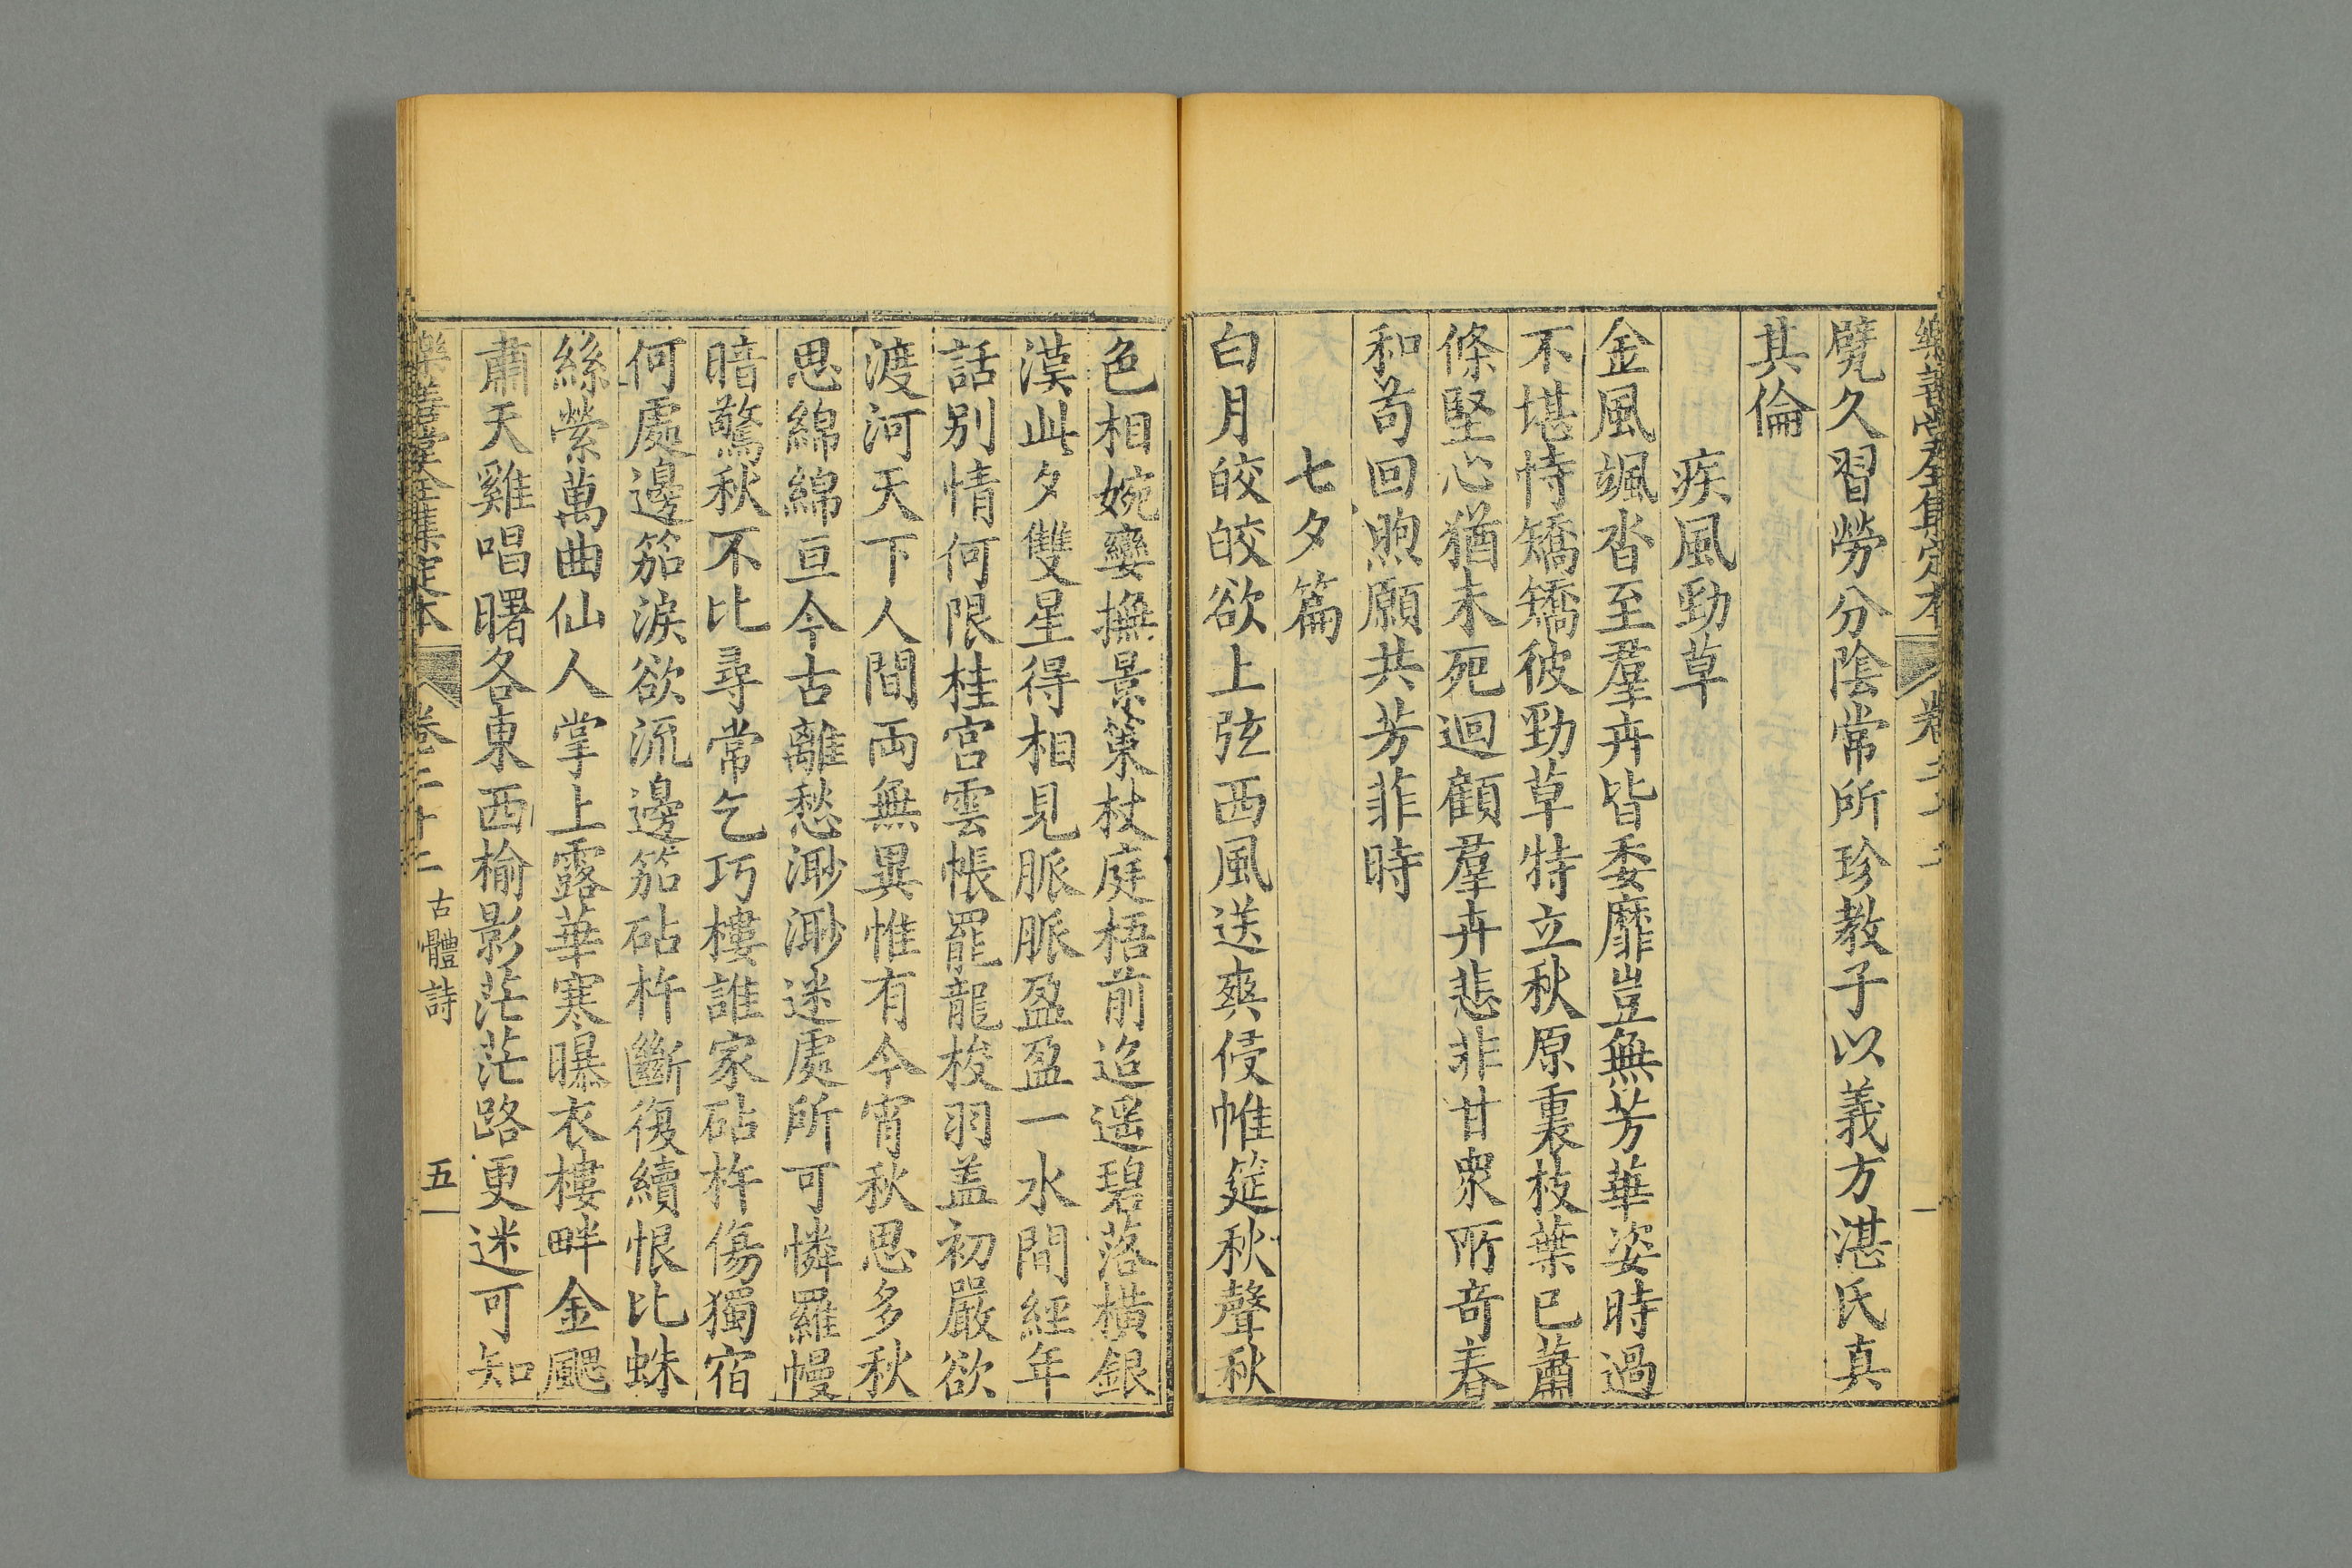 甓久習勞分陰常所珍教子以義方湛氏真
其倫
疾風勁草
金風颯沓至羣卉皆委靡豈無芳華姿時過
不堪恃矯矯彼勁草特立秋原裏枝葉已蕭
條堅心猶未死迴顧羣卉悲非甘衆所奇春
和苟回煦願共芳菲時
七夕篇
白月皎皎欲上弦西風送爽侵帷筵秋聲秋
色相婉孌撫景策杖庭梧前迢遥碧落橫銀
漢此夕雙星得相見脈脈盈盈一水間經年
話别情何限桂宮雲帳罷龍梭羽盖初嚴欲
渡河天下人間両無異惟有今宵秋思多秋
思綿綿亘今古離愁渺渺迷處所可憐羅幔
暗驚秋不比尋常乞巧樓誰家砧杵傷獨宿
何處邊笳淚欲流邊笳砧杵斷復續恨比蛛
絲縈萬曲仙人掌上露華寒曝衣樓畔金颸
肅天雞唱曙各東西榆影茫茫路更迷可知
樂善堂全集定本 卷二十二 古體詩 五